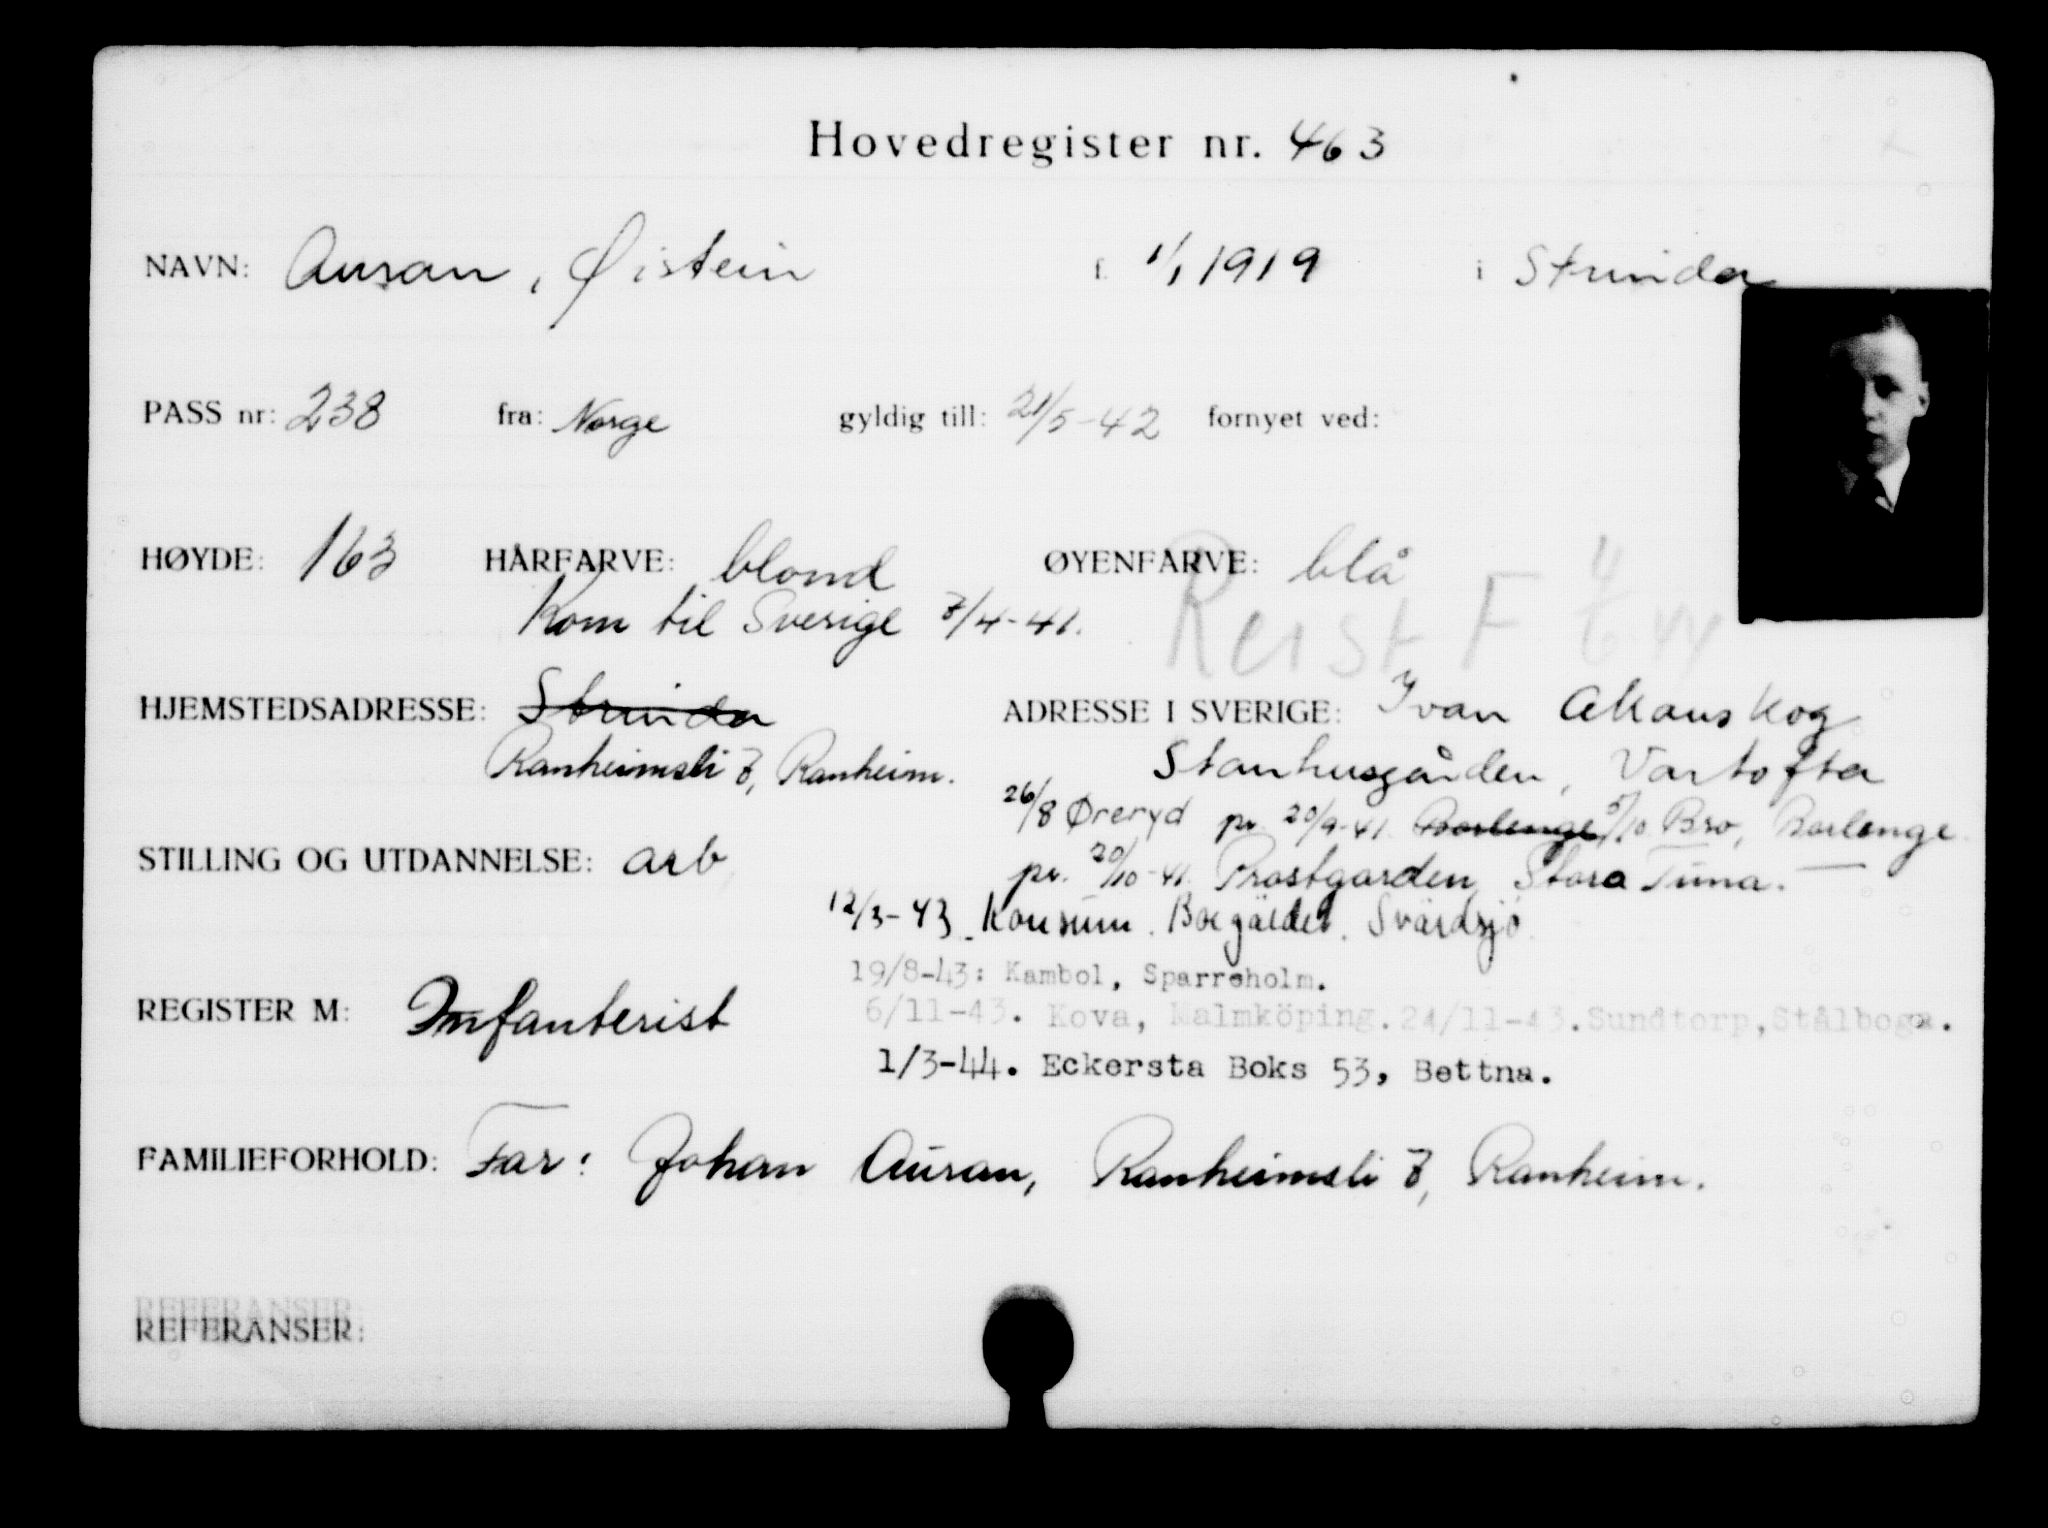 Hovedregister nr. 463
NAVN: Auran, Øistein f. 1/1 1919 i Strinda
PASS nr: 238 fra: Norge gyldig till: 21/5-42 fornyet ved:
HØYDE: 163 HÅRFARVE: blond ØYENFARVE: blå
Kom til Sverige 7/4-41. Reist F
HJEMSTEDSADRESSE: Strinda ADRESSE I SVERIGE: Ivan
Ranheimsli 7, Ranheim. Stanhusgården, Vartofta
26/8 Øreryd pr. 20/9-41 Borlenge 5/10 Bro, Borlenge
STILLING OG UTDANNELSE: arb pr. 20/10-41. Prostgarden Stora Tuna.
12/3-43 Konsum. Svärdsjö
19/8-43: Kambol, Sparreholm.
REGISTER M: Infanterist 6/11-43. Kova, Malmköping. 24/11-43. Sundtorp, Stålboga.
1/3-44. Eckersta Boks 53, Bettna.
FAMILIEFORHOLD: Far: Johan Auran, Ranheimsli 7, Ranheim.
REFERANSER: